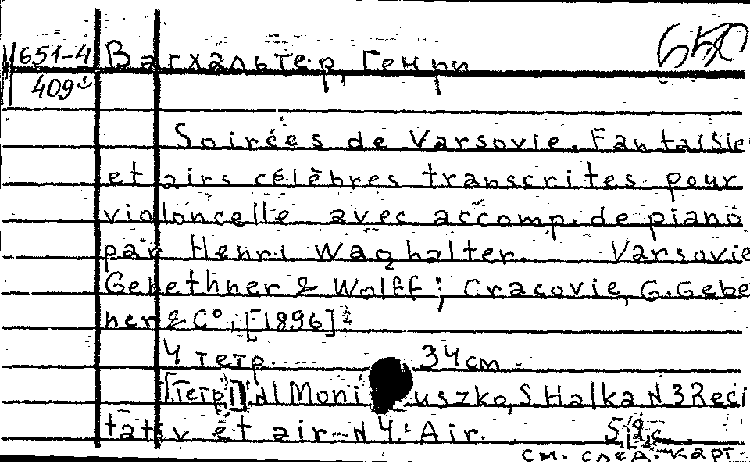 651-4 Вагхальтер, Генри 650
409
Soirées de Varsovie. Fantaisie
et airs célèbres transcrites pour
violoncelle avec accomp. de piano
par Henri Waghalter. Varsovie
Gebethner & Wolff; Cracovie, G. Gebe
ner & C°; [1896]
4 тетр. 34 см.
Тетр I N1 Moni uszko, S Halka N3 Reci
tativ et air - N4. Air.
см. след. карт.